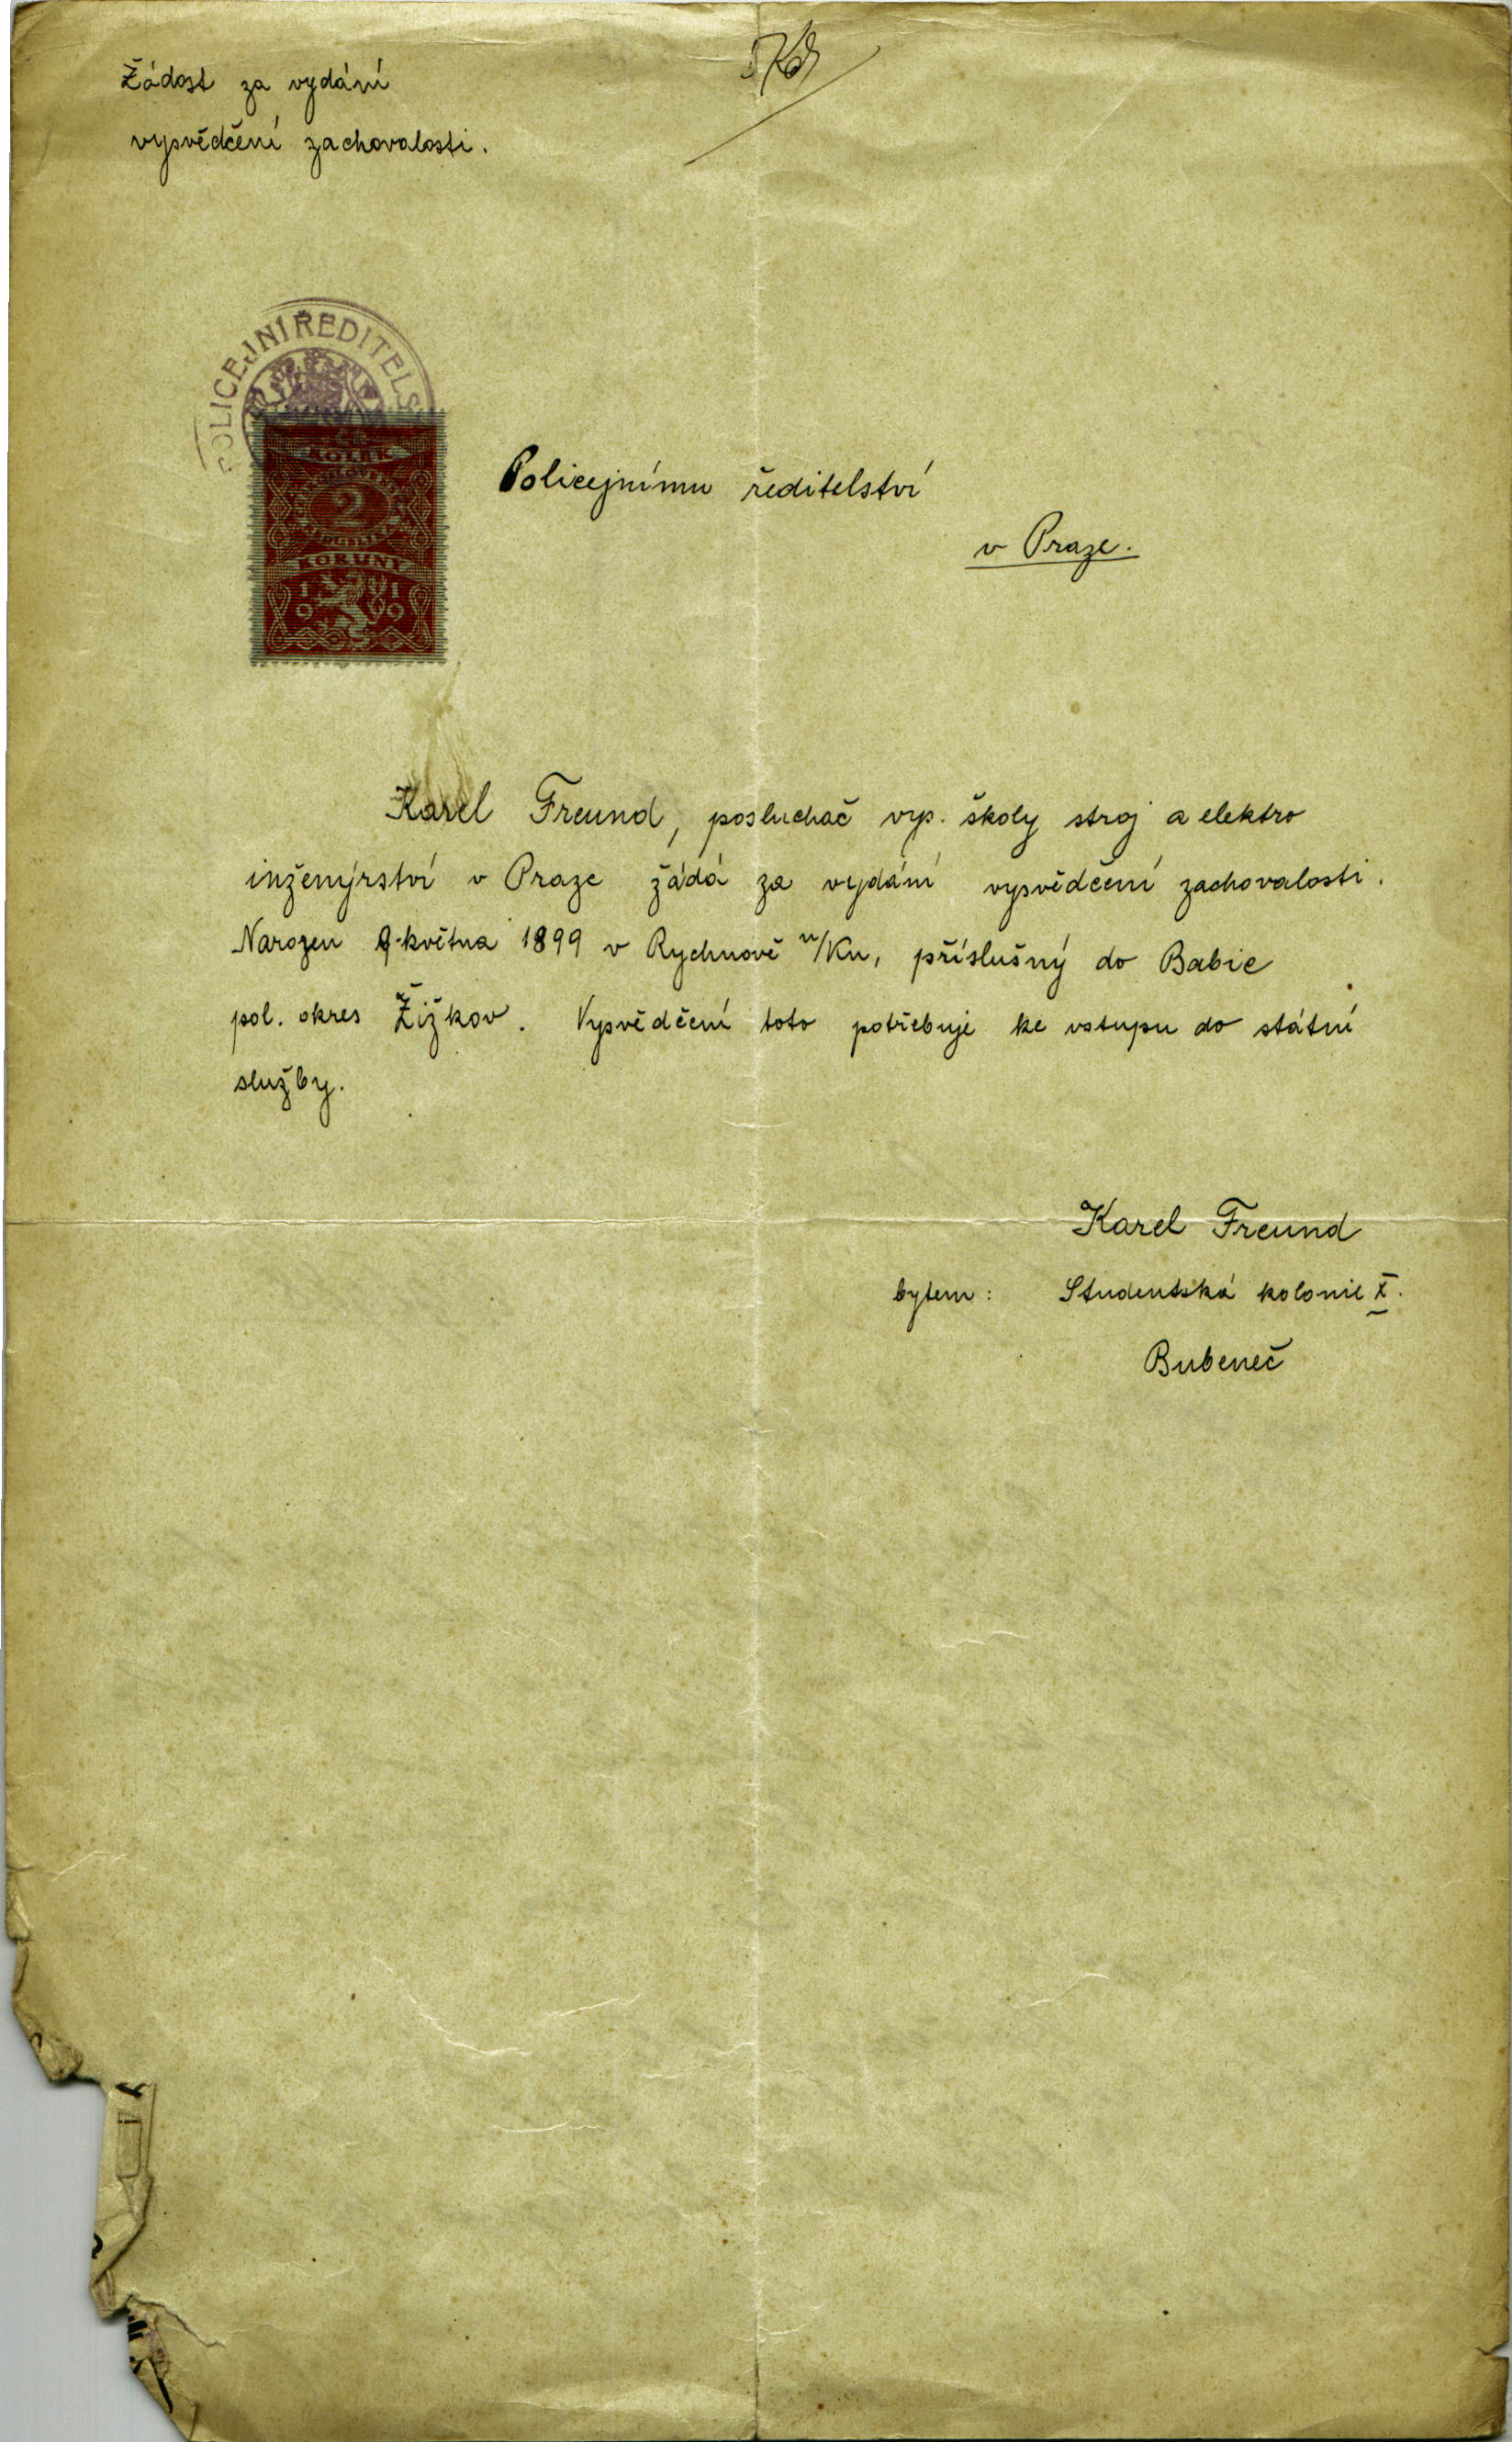 Žádost za vydání
vysvědčení zachovalosti.
POLICEJNÍ ŘEDITELS
KOLEK
2
KORUNY
1919
Policejnímu ředitelství
v Praze.
Karel Freund, posluchač vys. školy stroj a elektro
inženýrství v Praze žádá za vydání vysvědčení zachovalosti.
Narozen 9. května 1899 v Rychnově n/Kn, příslušný do Babic
pol. okres Žižkov. Vysvědčení toto potřebuje ke vstupu do státní
služby.
Karel Freund
bytem: Studentská kolonie X.
Bubeneč